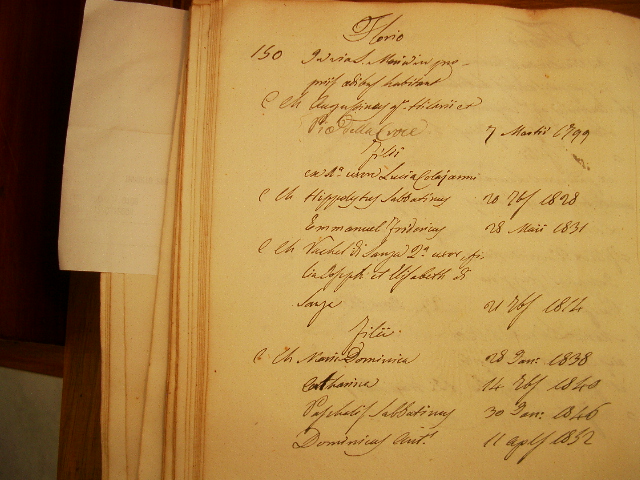 Florio
150 In via S. Mariae in pro-
priis aedibus habitant
C Ch Augustinus q.m Hilarii et
Pia Della Croce 7 Martii 1799
Filii
ex 1a uxore Lucia Colajanni
C Ch Hippolytus Sabbatinus 20 7bf 1828
Emmanuel Fridericus 28 Maii 1831
C Ch Rachel di Sanza 2a uxor, fi-
lia Joseph et Elisabeth Di
Sanza 21 7bf 1814
Filii
C Ch Maria Dominica 28 Jan: 1838
Catharina 14 7bf 1840
Paschalis Sabbatinus 30 Jan: 1846
Dominicus Ant.s 11 aplf 1852